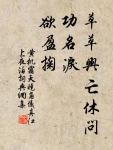 草草興亡休問
功名淚
欲盈掬
黄机霜天曉角儀真江
上夜泊詞典網集